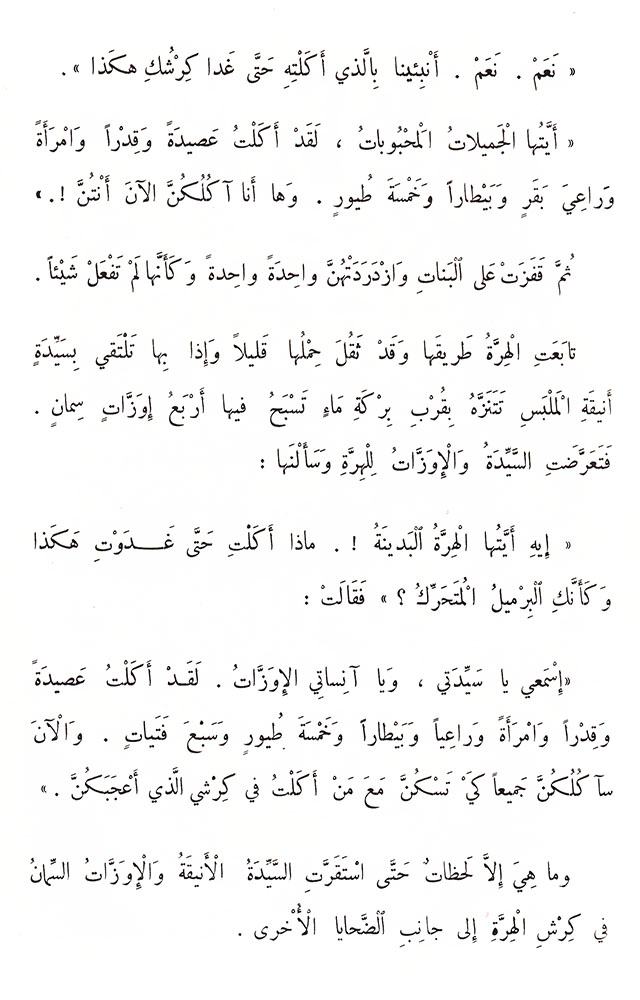 « نَعَمْ . نَعَمْ . أَنْبِئينا بِالَّذي أَكَلْتِهِ حَتَّى غَدا كِرْشُكِ هكَذا » .
« أَيَّتُها الْجَميلاتُ الْمَحْبُوباتُ ، لَقَدْ أَكَلْتُ عَصيدَةً وَقِدْراً وَامْرَأَةً
وَراعِيَ بَقَرٍ وَبَيْطاراً وَخَمْسَةَ طُيورٍ . وَها أَنا آكُلُكُنَّ الآنَ أَنْتُنَّ ! . »
ثُمَّ قَفَزَتْ عَلى الْبَناتِ وَازْدَرَدَتْهُنَّ واحِدَةً واحِدةً وَكَأَنَّها لَمْ تَفْعَلْ شَيْئاً .
تابَعَتِ الْهِرَّةُ طَريقَها وَقَدْ ثَقُلَ حِمْلُها قَليلاً وَإِذا بِها تَلْتَقي بِسَيِّدَةٍ
أَنيقَةِ الْمَلْبَسِ تَتَنَزَّهُ بِقُرْبِ بِرْكَةِ ماءٍ تَسْبَحُ فيها أَرْبَعُ إِوَزَّاتٍ سِمانٍ .
فَتَعَرَّضَتِ السَّيِّدَةُ وَالْإِوَزَّاتُ لِلْهِرَّةِ وَسَأَلْنَها :
« إِيهِ أَيَّتُها الْهِرَّةُ الْبَدينَةُ ! . ماذا أَكَلْتِ حَتَّى غَـــدَوْتِ هَكَذا
وَكَأَنَّكِ الْبِرْميلُ الْمُتَحَرِّكُ ؟ » فَقَالَتْ :
«إِسْمَعي يا سَيِّدَتي ، وَيا آنِساتي الإِوَزَّاتُ . لَقَـدْ أَكَلْتُ عَصيدَةً
وَقِدْراً وَامْرَأَةً وَراعِياً وَبَيْطاراً وَخَمْسَةَ طُيورٍ وَسَبْعَ فَتَياتٍ . وَالْآنَ
سآكُلُكُنَّ جَميعاً كَيْ تَسْكُنَّ مَعَ مَنْ أَكَلْتُ في كِرْشي الَّذي أَعْجَبَكُنَّ . »
وما هِيَ إِلاَّ لَحظاتٌ حَتَّى اسْتَقَرَّتِ السَّيِّدَةُ الْأَنيقَةُ وَالْإِوَزَّاتُ السِّمانُ
في كِرْشِ الْهِرَّةِ إِلى جانِبِ الضَّحايا الْأُخْرى .